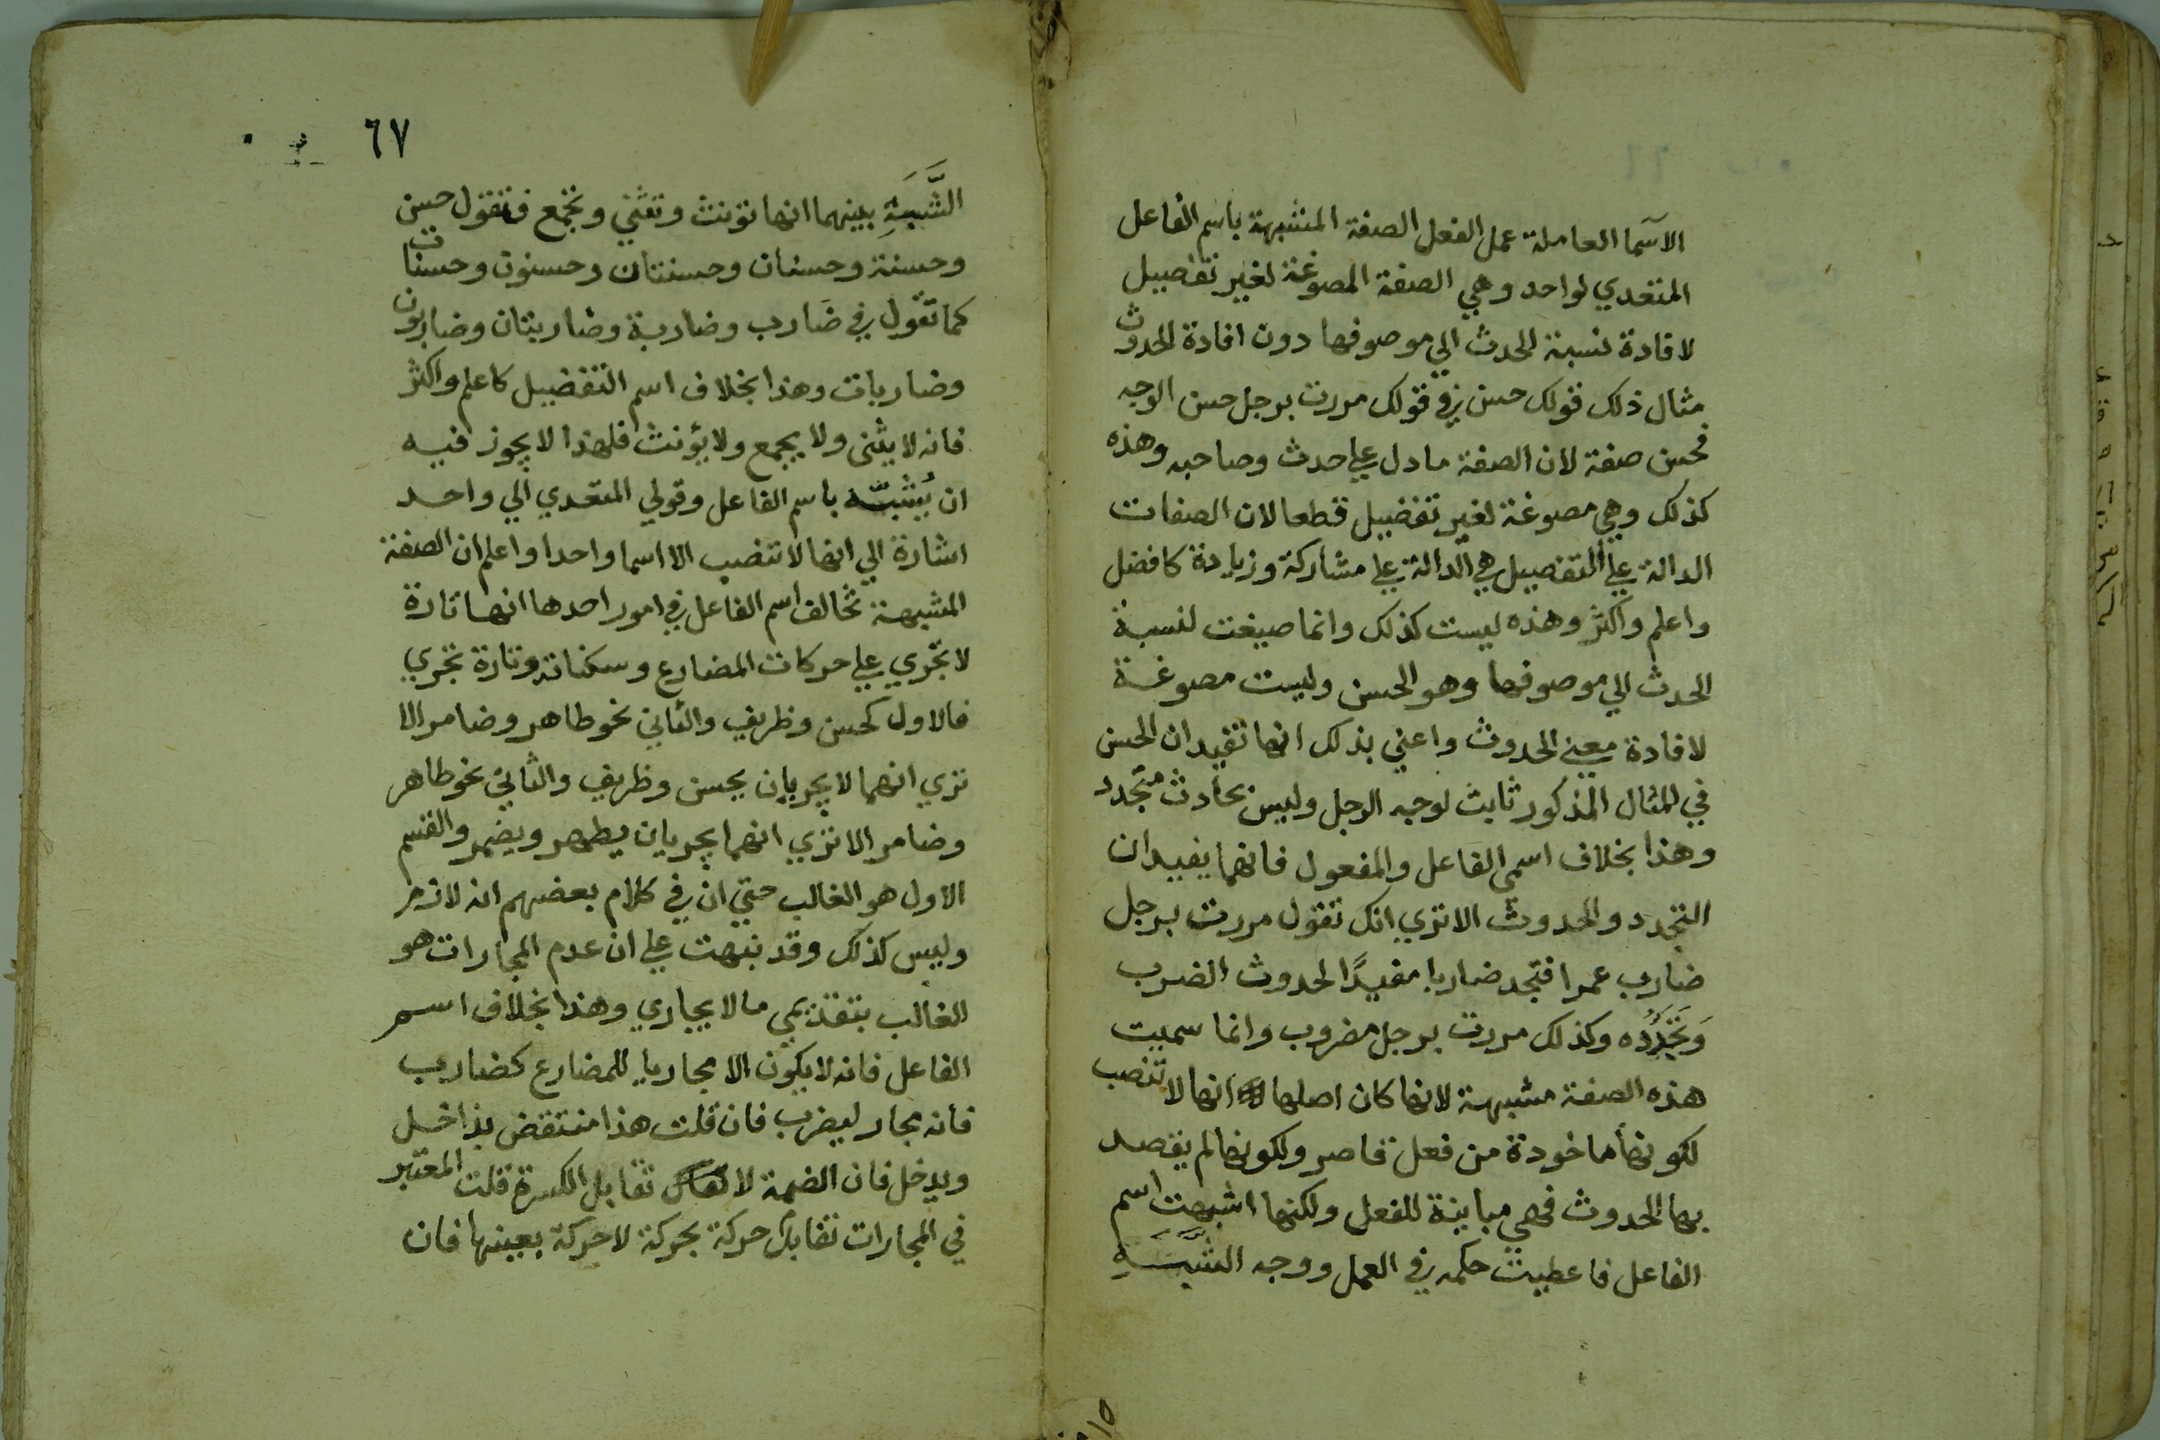 الاسما العاملة عمل الفعل الصفة المشبهة باسم الفاعل
المتعدي لواحد وهي الصفة المصوغة لغير تفضيل
لافادة نسبة الحدث الي موصوفها دون افادة الحدوث
مثال ذلك قولك حسن في قولك مررت برجل حسن الوجه
فحسن صفة لان الصفة ما دل علي حدث وصاحبه وهذه
كذلك وهي مصوغة لغير تفضيل قطعا لان الصفات
الدالة علي التفضيل هي الدالة علي مشاركة وزيادة كافضل
واعلم واكثر وهذه ليست كذلك وانما صيغت لنسبة
الحدث الي موصوفها وهو الحسن وليست مصوغة
لافادة معني الحدوث واعني بذلك انها تفيد ان الحسن
في المثال المذكور ثابت لوجه الرجل وليس بحادث متجدد
وهذا بخلاف اسمي الفاعل والمفعول فانهما يفيدان
التجدد والحدوث الا تري انك تقول مررت برجل
ضارب عمرا فتجد ضاربا مفيدًا لحدوث الضرب
وَتَجَدُّدِه وكذلك مررت برجل مضروب وانما سميت
هذه الصفة مشبهة لانها كان اصلها انها لا تنصب
لكونها ماخوذة من فعل قاصر ولكونها لم يقصد
بها الحدوث فهي مباينة للفعل ولكنها اشبهت اسم
الفاعل فاعطيت حكمه في العمل ووجه الشَّبَهِ
٦٧
الشَّبَهِ بينهما انها تؤنث وتثني وتجمع فتقول حسن
وحسنة وحسنان وحسنتان وحسنون وحسنات
كما تقول في ضَارب وضاربة وضاربتان وضاربون
وضاربات وهذا بخلاف اسم التفضيل كاعلم واكثر
فانه لا يثنى ولا يجمع ولا يؤنث فلهذا لا يجوز فيه
ان يُشبّه باسم الفاعل وقولي المتعدي الي واحد
اشارة الي انها لا تنصب الا اسما واحدا واعلم ان الصفة
المشبهة تخالف اسم الفاعل في امور احدها انها تارة
لا تجري علي حركات المضارع وسكناته وتارة تجري
فالاول كحسن وظريف والثاني نحو طاهر وضامر الا
تري انهما لا يجريان يحسن وظريف والثاني نحو طاهر
وضامر الا تري انهما يجريان يطهر ويضمر والقسم
الاول هو الغالب حتي ان في كلام بعضهم انه لازم
وليس كذلك وقد نبهت علي ان عدم المجارات هو
الغالب بتقديمي ما لا يجاري وهذا بخلاف اسم
الفاعل فانه لا يكون الا مجاريا للمضارع كضارب
فانه مجار ليضرب فان قلت هذا منتقض بداخل
ويدخل فان الضمة لا تقابل الكسرة قلت المعتبر
في المجارات تقابل حركة بحركة لا حركة بعينها فان